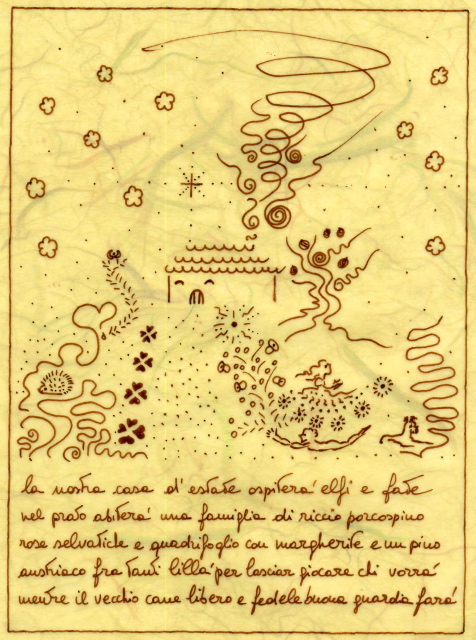 la nostra casa d'estate ospiterà elfi e fate
nel prato abiterà una famiglia di riccio porcospino
rose selvatiche e quadrifoglio con margherite e un pino
austriaco fra tanti lillà per lasciar giocare chi vorrà
mentre il vecchio cane libero e fedele buona guardia farà